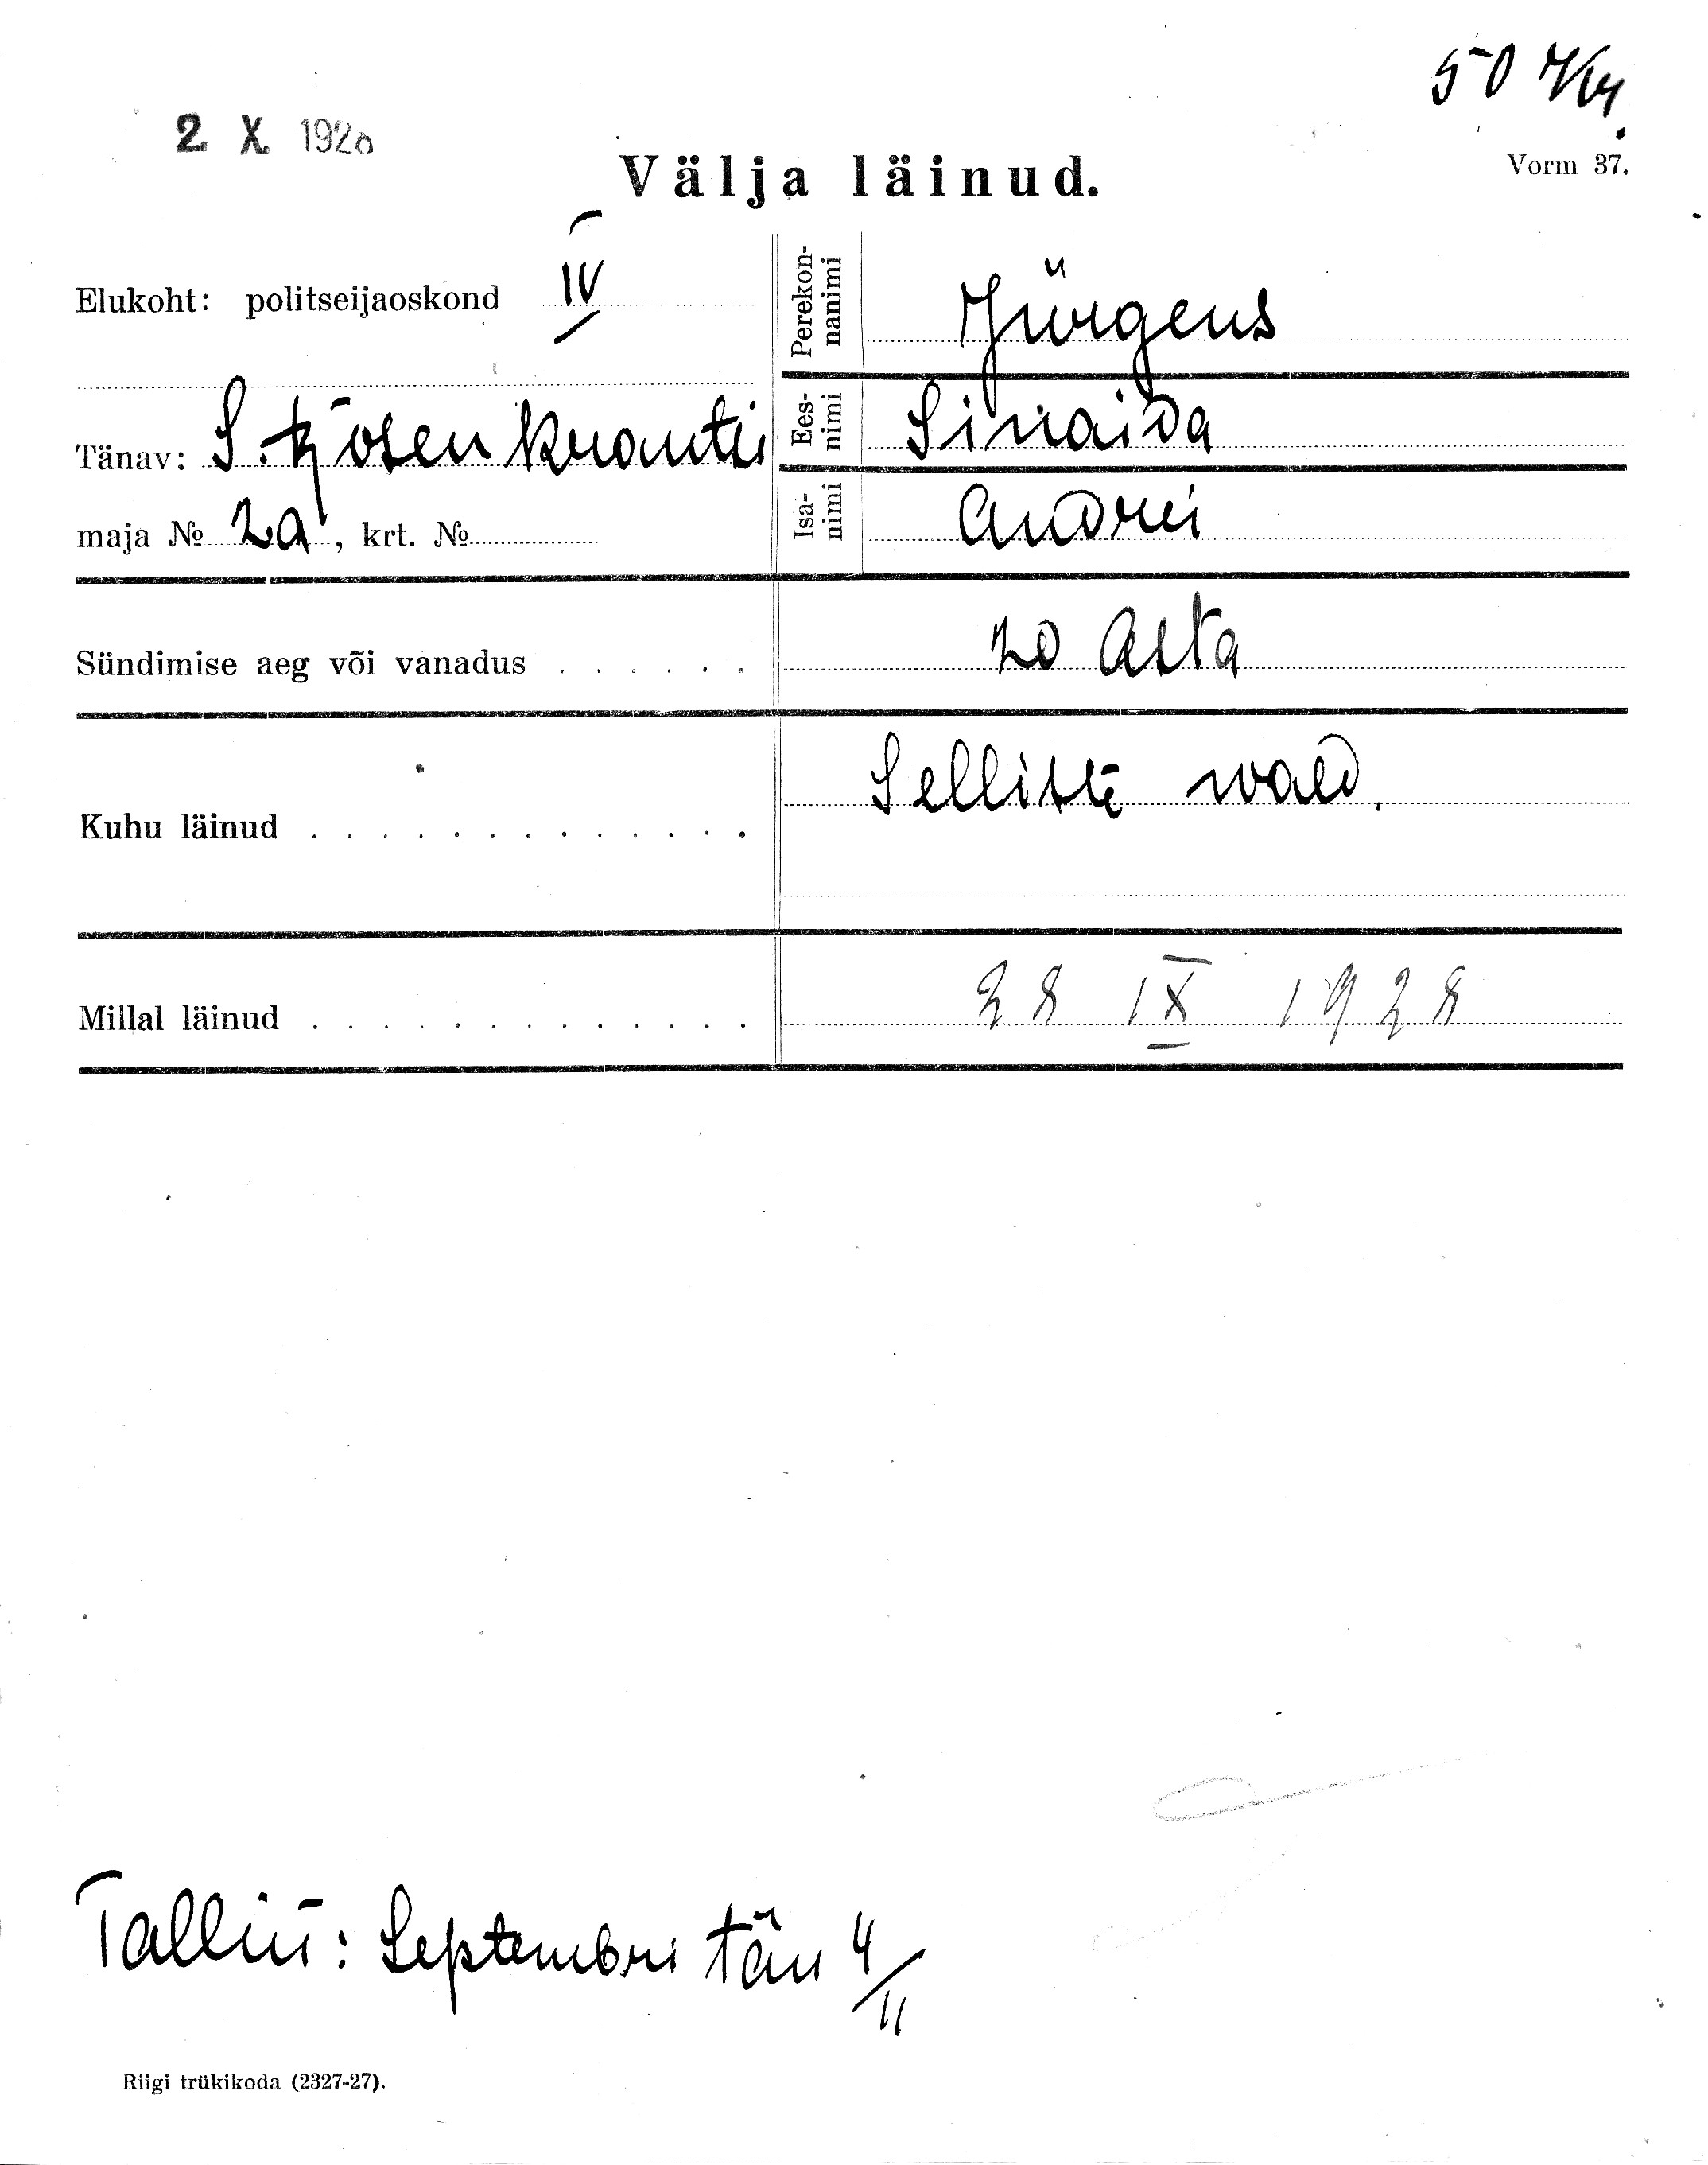 50 Kry.
2 X 1928
Välja läinud.
Vorm 37.
Elukoht: politseijaoskond IV
Perekon-
nanimi
Jürgens
Tänav: S. Rosenkrantsi
Ees-
nimi
Sinaida
maja № 2a, krt. №
Isa-
nimi
Andrei
Sündimise aeg või vanadus . . . . . .
20 Asta
Kuhu läinud . . . . . . . . . . . . .
Selliste vald.
Millal läinud . . . . . . . . . . . . .
28 IX 1928
Tallin: Septembri tän 4/11
Riigi trükikoda (2327-27).